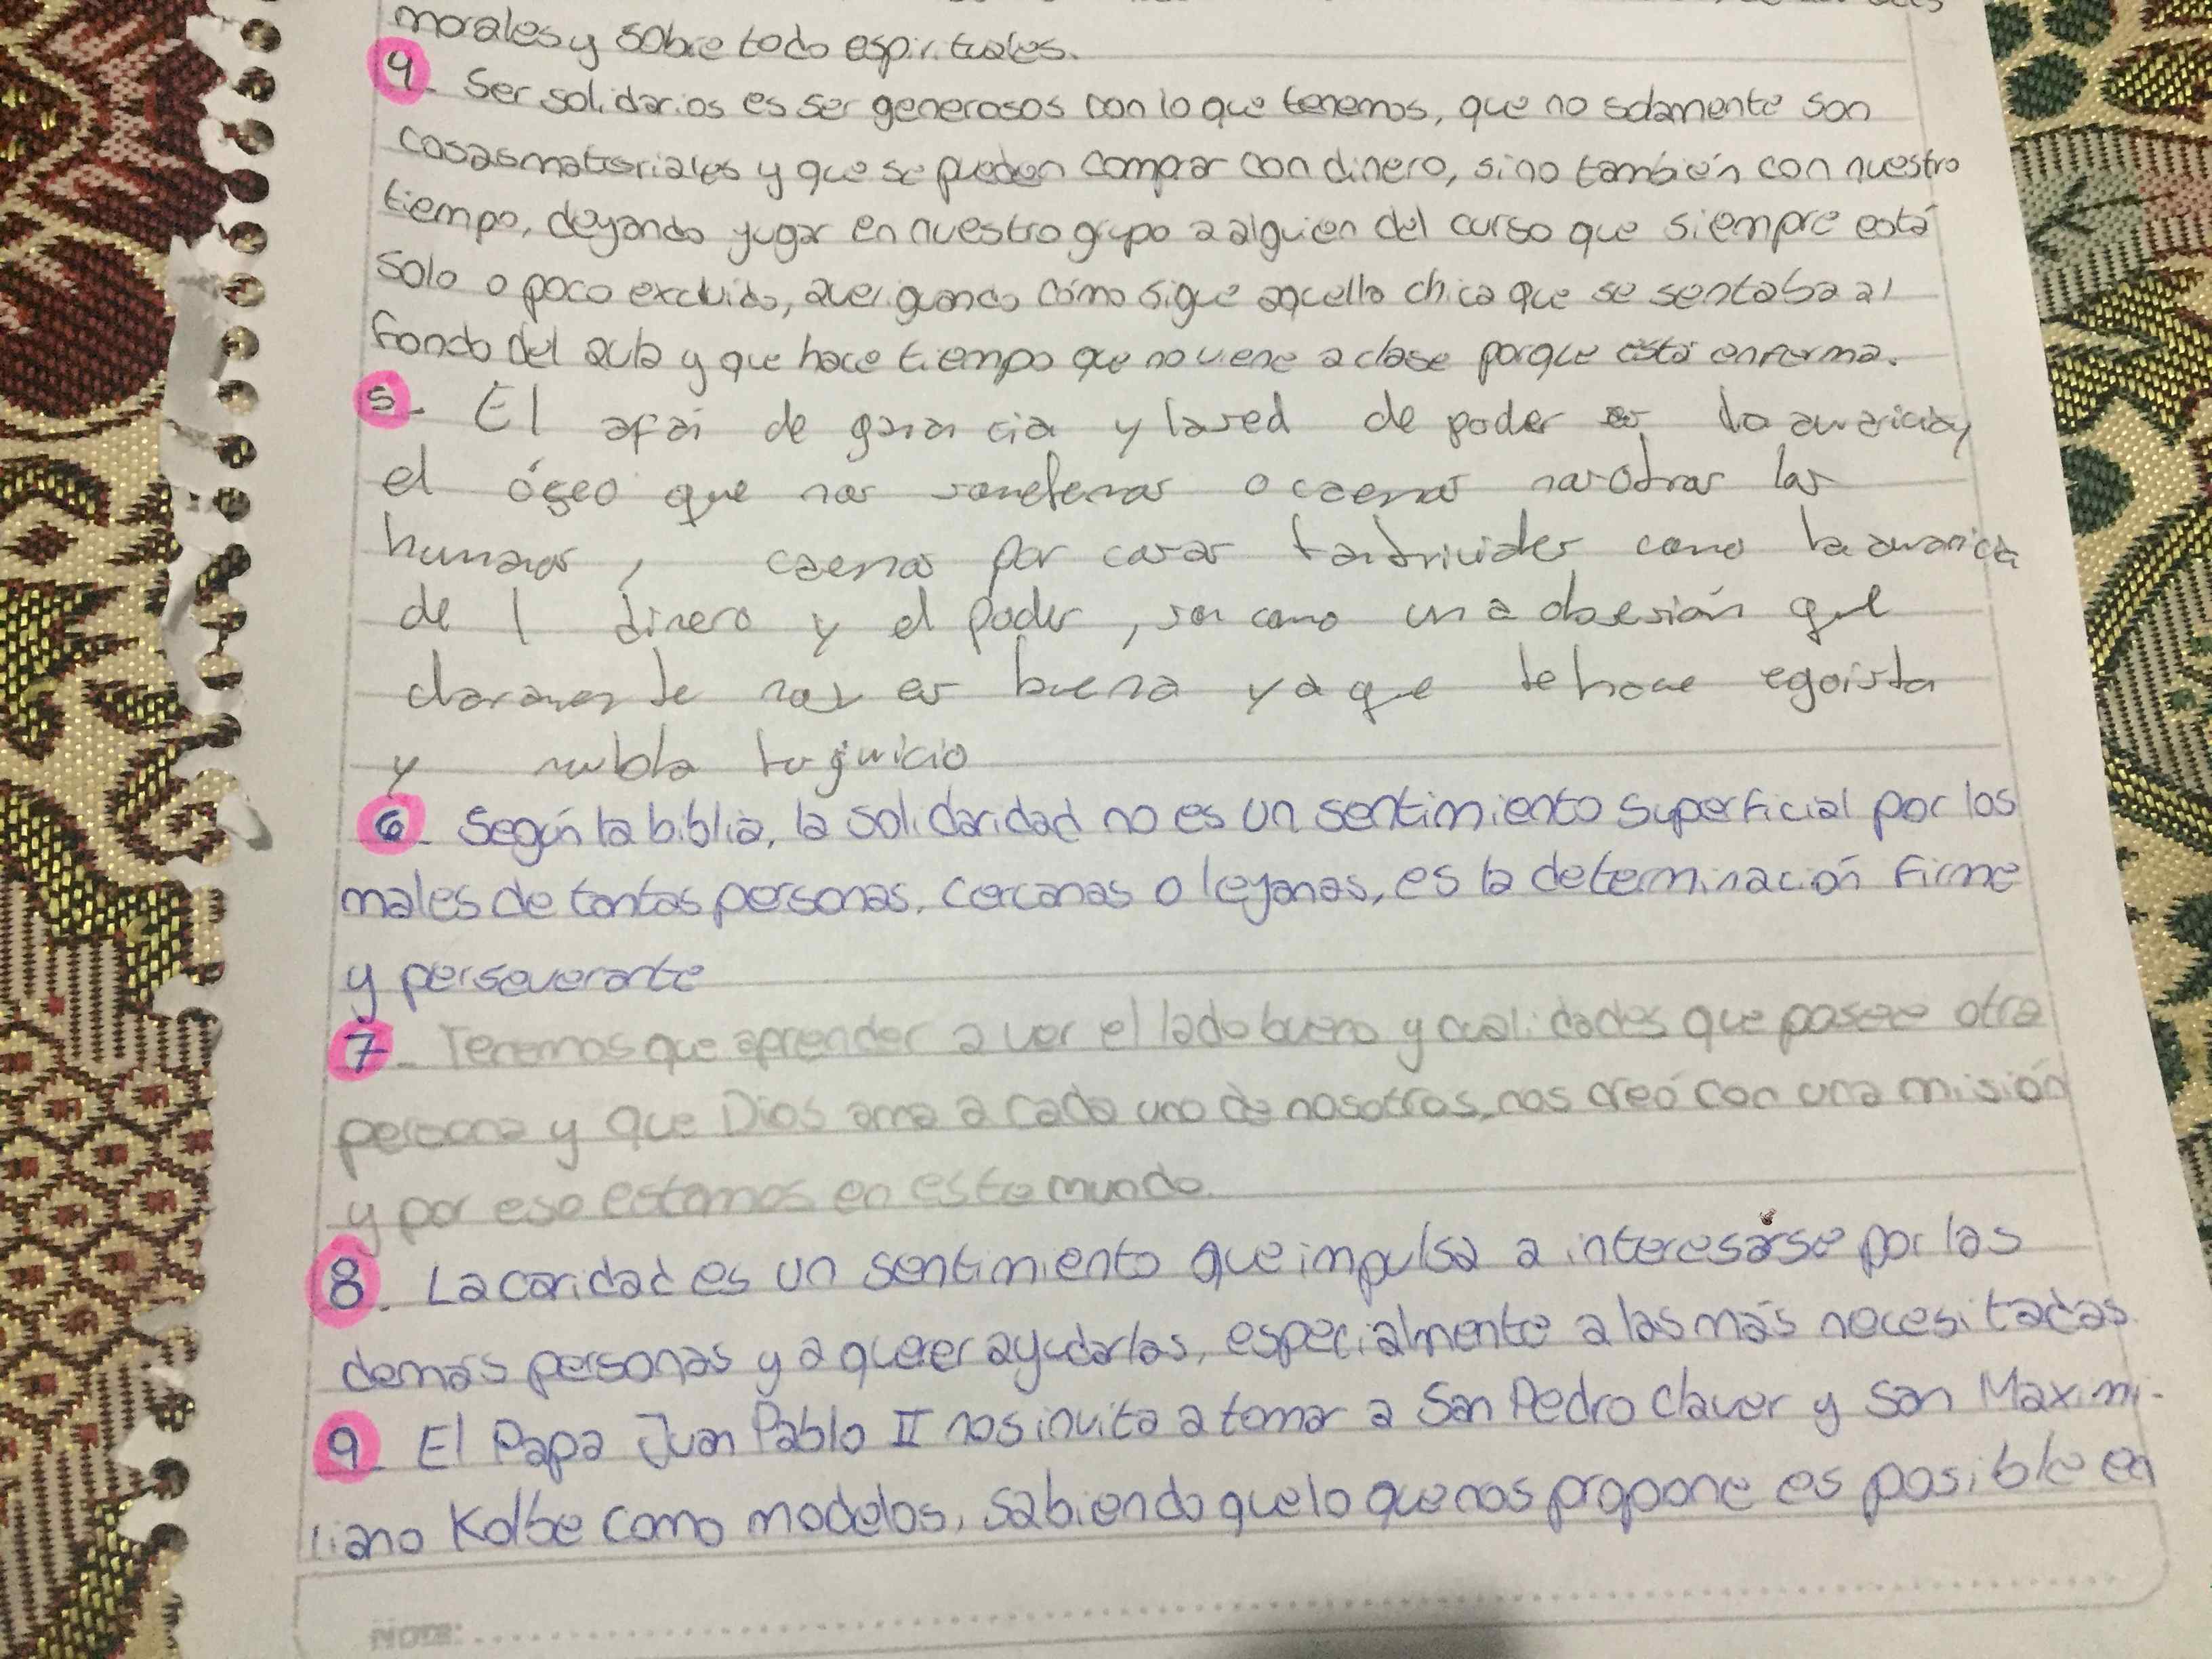 morales y sobre todo espirituales.
4. Ser solidarios es ser generosos con lo que tenemos, que no solamente son
cosas materiales y que se pueden comprar con dinero, sino también con nuestro
tiempo, deyando yugar en nuestro grupo a alguien del curso que siempre está
solo o poco excluido, averiguando cómo sigue aquella chica que se sentaba al
fondo del aula y que hace tiempo que no viene a clase porque está enferma.
5. El afán de ganancia y la sed de poder es la avaricia y
el que nos sometemos o caemos nosotros los
humanos, caemos por cosas tan como la avaricia
del dinero y el poder, son como una obsesión que
claramente no es buena ya que te hace egoista
y nubla tu juicio
6. Según la biblia, la solidaridad no es un sentimiento superficial por los
males de tantas personas, cercanas o leyanas, es la determinación firme
y perseverante
7. Tenemos que aprender a ver el lado bueno y cualidades que posee otra
persona y que Dios ama a cada uno de nosotros, nos creó con una misión
y por eso estamos en este mundo.
8. La caridad es un sentimiento que impulsa a interesarse por las
demás personas y a querer ayudarlas, especialmente a las más necesitadas.
9. El Papa Juan Pablo II nos invita a tomar a San Pedro Claver y San Maximi-
liano Kolbe como modelos, sabiendo que lo que nos propone es posible en
NOTE: